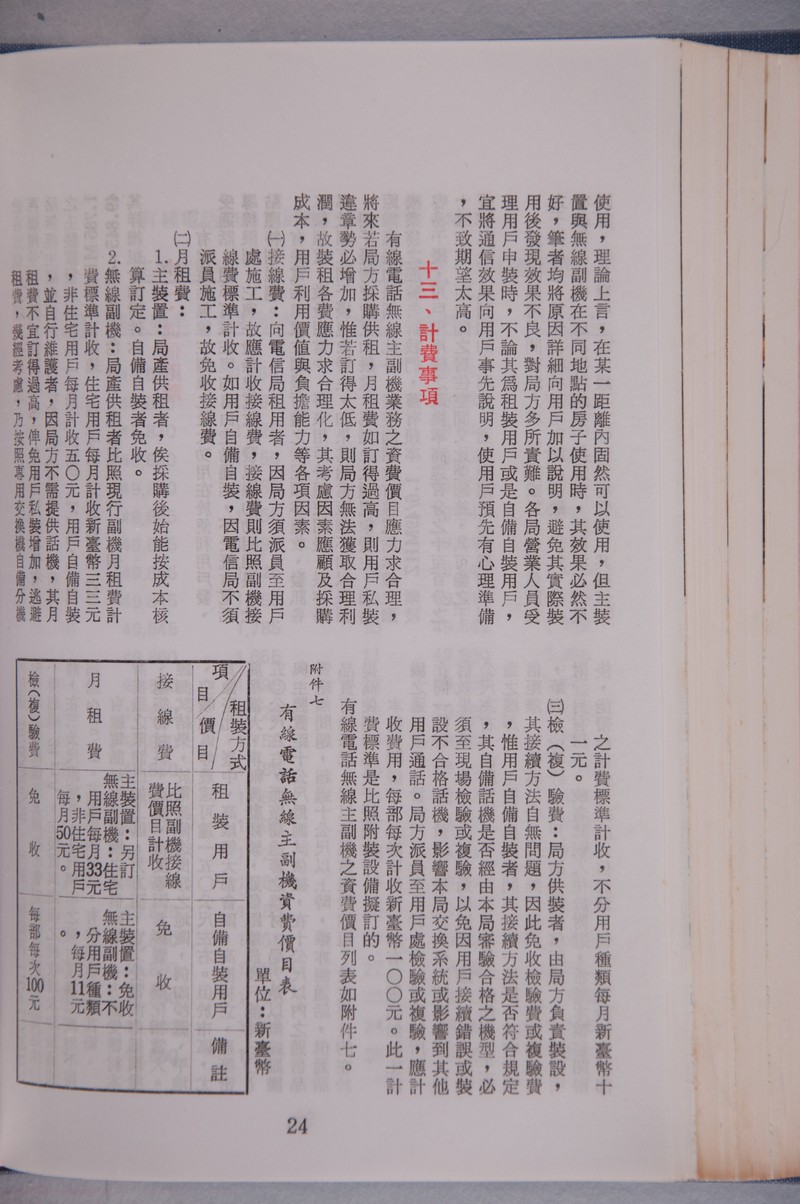 使用，理論上言，在某一距離內固然可以使用，但主裝
置與無線副機在不同地點的房子使用時，其效果必然不
好，筆者均將原因詳細向用戶加以說明，避免其實際裝
用後發現效果不良，對局方多所責難。各局營業人員受
理用戶申裝時，不論其為租裝用戶或是自備自裝用戶，
宜將通信效果向用戶事先說明，使用戶預先有心理準備
，不致期望太高。
十三、計費事項
有線電話無線主副機業務之資費價目應力求合理，
將來若局方採購供租，月租費如訂得過高，則用戶私裝
違章勢必增加，惟若訂得太低，則局方無法獲取合理利
潤，故裝租各費應力求合理化，其考慮因素應顧及採購
成本，用戶利用價值與負擔能力等各項因素。
㈠接線費：向電信局租用者，因局方須派員至用戶
處施工，故應計收接線費，接線費則比照副機接
線費標準計收。如用戶自備自裝，因電信局不須
派員施工，故免收接線費。
㈡月租費：
1.主裝置：局產供租者，俟採購後始能按成本核
算訂定。自備自裝者免收。
2.無線副機：局產供租者比照現行副機月租費計
費標準計收，住宅用戶每月計收新臺幣三三元
，非住宅用戶每月計收五〇元，用戶自備自裝
，並自行維護者，因局方不需提供話機，其月
租費不宜訂得過高，俾免用戶私裝增加，逃避
租費，幾經考慮，乃按照專用交換機自備分機
之計費標準計收，不分用戶種類每月新臺幣十
一元。
㈢檢（複）驗費：局方供裝者，由局方負責裝設，
其接續方法自無問題，因此免收檢驗費或複驗費
，惟用戶自備自裝者，其接續方法是否符合規定
，其自備話機是否經由本局審驗合格之機型，必
須至現場檢驗或複驗，以免因用戶接續錯誤或裝
設不合格話機，影響本局交換系統或影響到其他
用戶通話。局方派員至用戶處檢驗或複驗，應計
收費用，每部每次計收新臺幣一〇〇元。此一計
費標準是比照附裝設備擬訂的。
有線電話無線主副機之資費價目列表如附件七。
附件七
有線電話無線主副機資費價目表
單位：新臺幣
租裝方式
價目
項目
租裝用戶
自備自裝用戶
備註
接線費
比照副機接線
費價目計收
免收
月租費
主裝置：另訂
無線副機：住宅
用戶每月33元
，非住宅用戶
每月50元。
主裝置：免收
無線副機：不
分用戶種類
，每月11元
。
檢（複）驗費
免收
每部每次100元
24